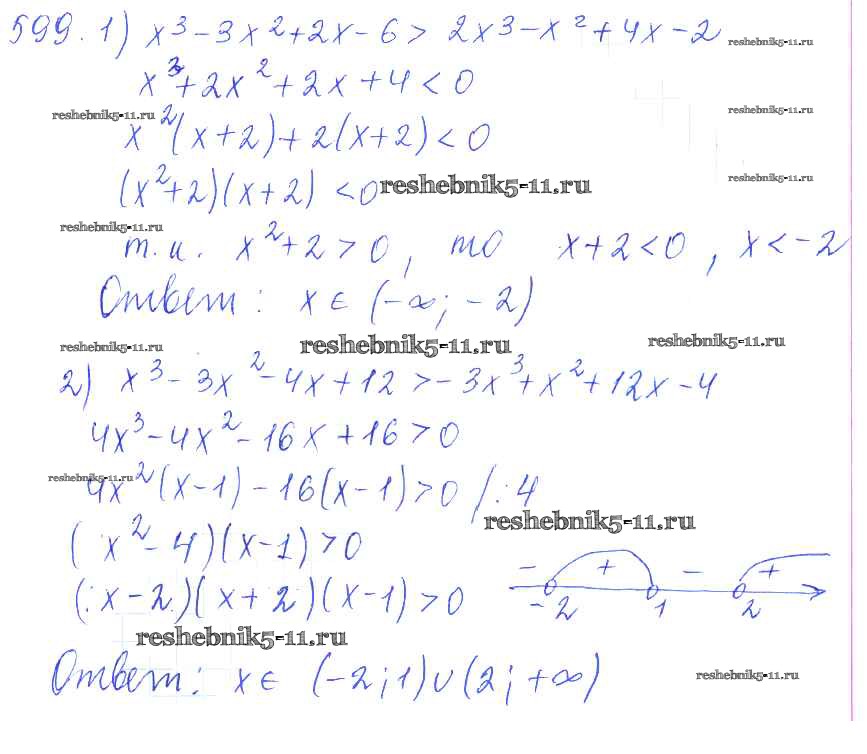 599. 1) x³ - 3x² + 2x - 6 > 2x³ - x² + 4x - 2
reshebnik5-11.ru
x³ + 2x² + 2x + 4 < 0
reshebnik5-11.ru
reshebnik5-11.ru
x²(x+2) + 2(x+2) < 0
(x²+2)(x+2) < 0
reshebnik5-11.ru
reshebnik5-11.ru
reshebnik5-11.ru
т.к. x²+2 > 0, то x+2 < 0, x < -2
Ответ: x ∈ (-∞; -2)
reshebnik5-11.ru
reshebnik5-11.ru
reshebnik5-11.ru
2) x³ - 3x² - 4x + 12 > -3x³ + x² + 12x - 4
4x³ - 4x² - 16x + 16 > 0
reshebnik5-11.ru
4x²(x-1) - 16(x-1) > 0 /:4
reshebnik5-11.ru
(x² - 4)(x-1) > 0
- + - +
(x-2)(x+2)(x-1) > 0
-2 1 2
reshebnik5-11.ru
Ответ: x ∈ (-2; 1) ∪ (2; +∞)
reshebnik5-11.ru